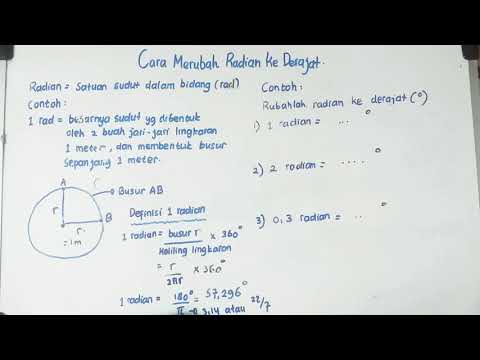 Cara Merubah Radian Ke Derajat.
Radian = Satuan sudut dalam bidang (rad)
Contoh :
1 rad = besarnya sudut yg dibentuk
oleh 2 buah jari-jari lingkaran
1 meter, dan membentuk busur
sepanjang 1 meter.
A
r
r
Busur AB
B
r
= 1m
Definisi 1 radian
1 radian = busur r / Keliling lingkaran × 360°
= r / 2πr × 360°
1 radian = 180° / π = 57,296°
→ 3,14 atau 22/7
Contoh :
Rubahlah radian ke derajat (°)
1) 1 radian = ... °
2) 2 radian = .... °
3) 0,3 radian = ... °